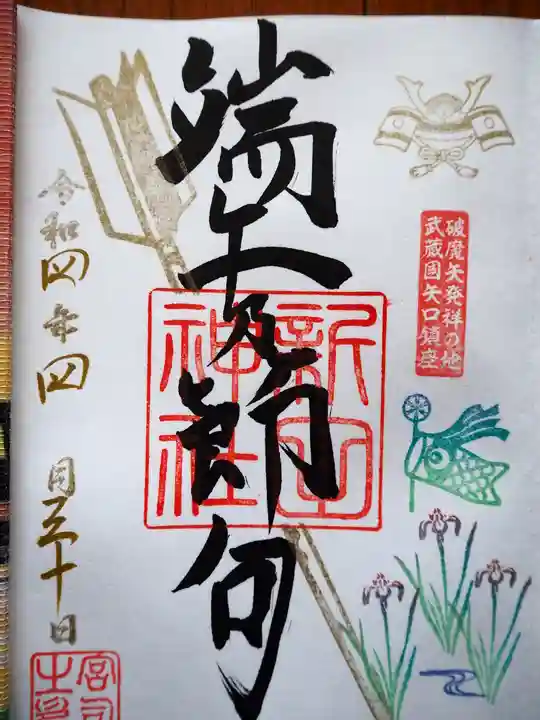 破魔矢発祥の地
武蔵国矢口鎮座
端午乃節句
新田神社
令和四年四月三十日